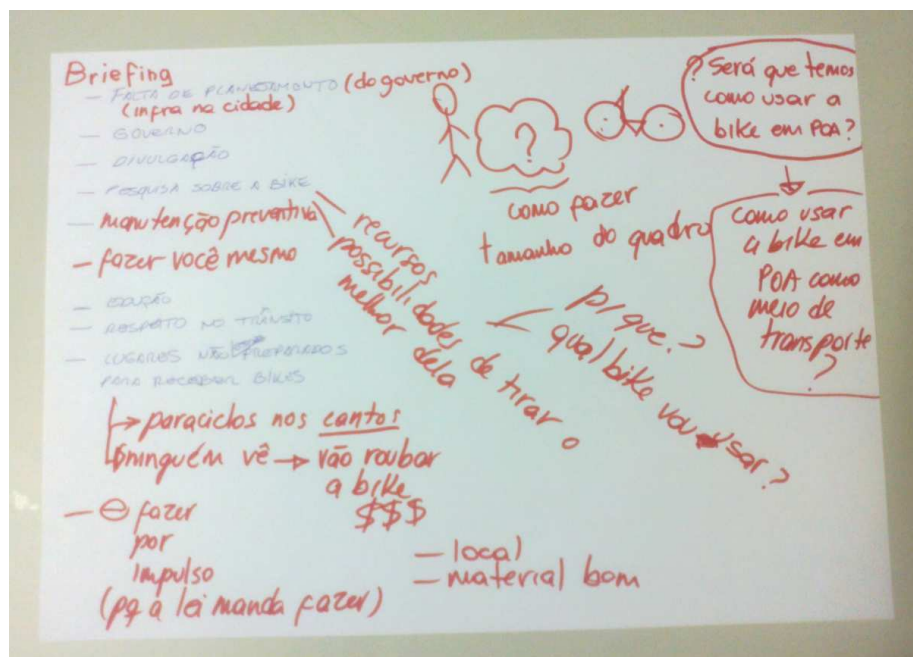 Briefing
— FALTA DE PLANEJAMENTO (do governo)
(infra na cidade)
— GOVERNO
— DIVULGAÇÃO
— PESQUISA SOBRE A BIKE
— manutenção preventiva
— fazer você mesmo
— EDUÇÃO
— RESPEITO NO TRÂNSITO
— LUGARES NÃO PREPARADOS
PARA RECEBER BIKES
paraciclos nos cantos
ninguém vê → vão roubar
a bike
$$$
— ⊖ fazer
por
impulso
(pq a lei manda fazer)
— local
— material bom
recursos
possibilidades de tirar o
melhor dela
?
como fazer
tamanho do quadro
p/ que?
qual bike vou usar?
? Será que temos
como usar a
bike em POA?
como usar
a bike em
POA como
meio de
transporte
?